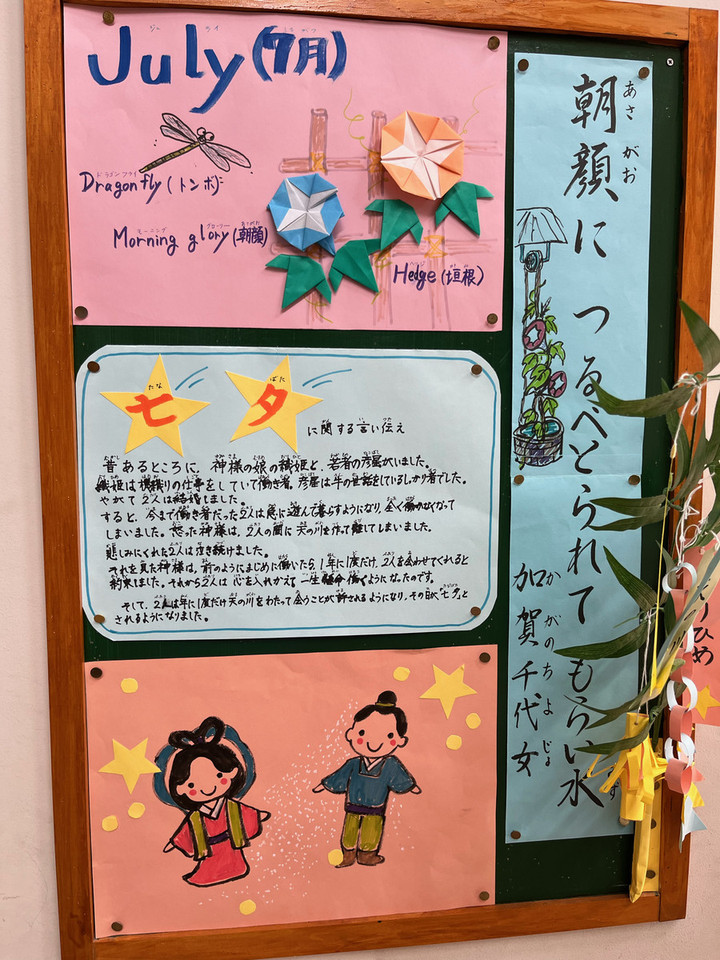 July(7月)
ジュライ
しちがつ
Dragonfly(トンボ)
ドラゴンフライ
Morning glory(朝顔)
モーニング グローリー
あさがお
Hedge(垣根)
ヘッジ
かきね
七夕
たなばた
に関する言い伝え
昔あるところに、神様の娘の織姫と、若者の彦星がいました。
織姫は機織りの仕事をしていて働き者、彦星は牛の世話をしているしっかり者でした。
やがて2人は結婚しました。
すると、今まで働き者だった2人は急に遊んで暮らすようになり、全く働かなくなって
しまいました。怒った神様は、2人の間に天の川を作って離してしまいました。
悲しみにくれた2人は泣き続けました。
それを見た神様は、前のようにまじめに働いたら、1年に1度だけ、2人を会わせてくれると
約束しました。それから2人は心を入れかえて一生懸命働くようになったのです。
そして、2人は年に1度だけ天の川をわたって会うことが許されるようになり、その日が、「七夕」と
されるようになりました。
朝顔に つるべとられて もらい水
あさがお
みず
加賀千代女
かがのちよじょ
りひめ